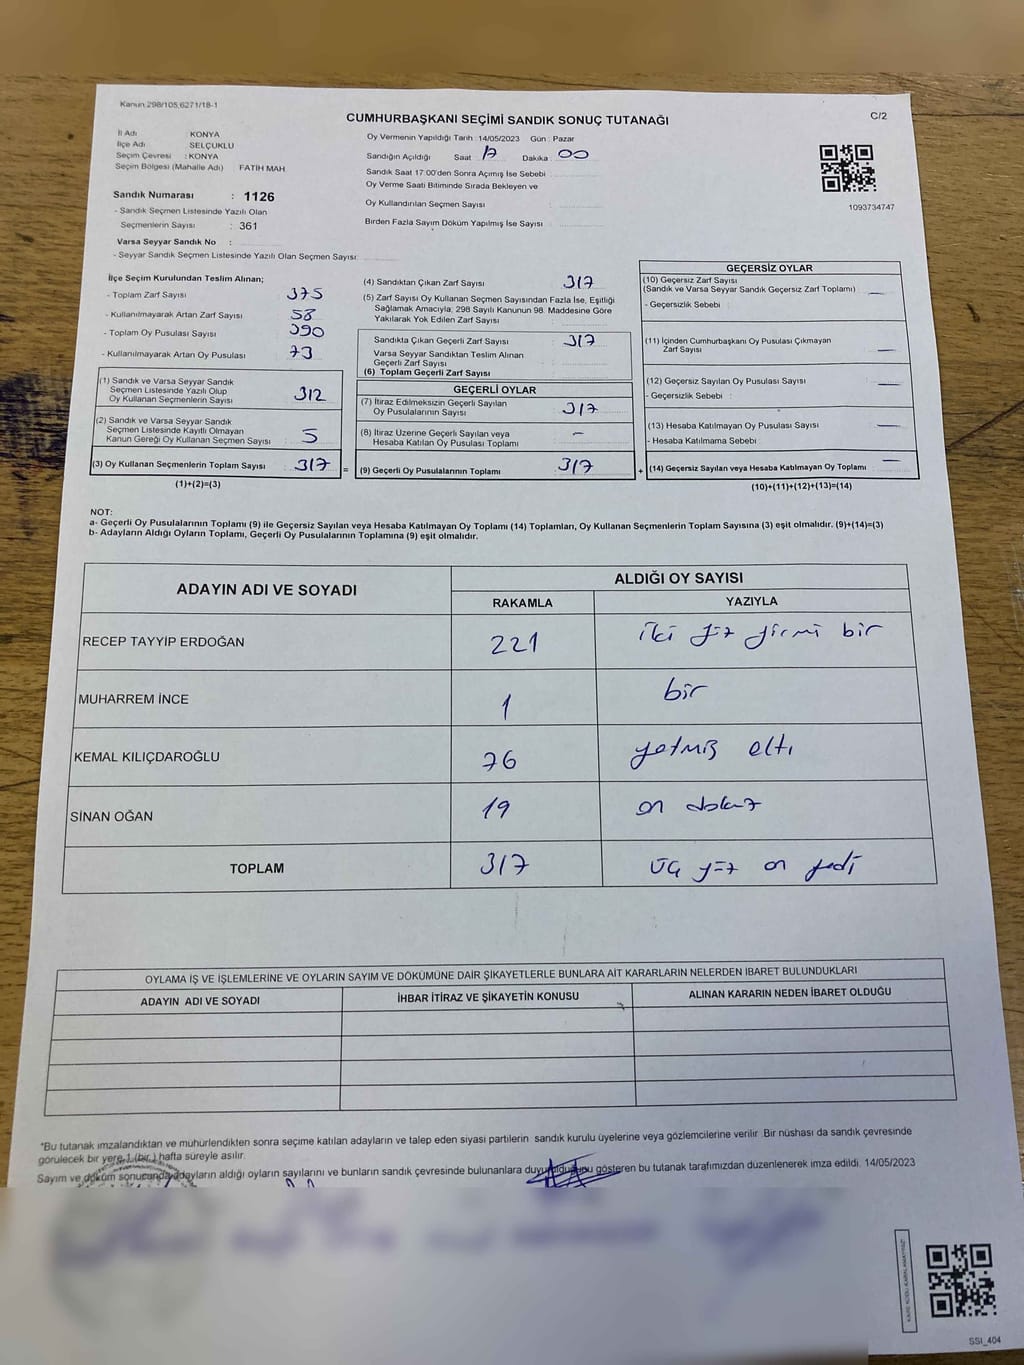 Kanun 298/105,6271/18-1
C/2
CUMHURBAŞKANI SEÇİMİ SANDIK SONUÇ TUTANAĞI
İl Adı : KONYA
İlçe Adı : SELÇUKLU
Seçim Çevresi : KONYA
Seçim Bölgesi (Mahalle Adı) FATİH MAH
Sandık Numarası : 1126
- Sandık Seçmen Listesinde Yazılı Olan
Seçmenlerin Sayısı : 361
Varsa Seyyar Sandık No :
- Seyyar Sandık Seçmen Listesinde Yazılı Olan Seçmen Sayısı:
Oy Vermenin Yapıldığı Tarih : 14/05/2023 Gün : Pazar
Sandığın Açıldığı Saat 17 Dakika 00
Sandık Saat 17:00'den Sonra Açımış İse Sebebi
Oy Verme Saati Bitiminde Sırada Bekleyen ve
Oy Kullandırılan Seçmen Sayısı :
Birden Fazla Sayım Döküm Yapılmış İse Sayısı :
1093734747
İlçe Seçim Kurulundan Teslim Alınan;
- Toplam Zarf Sayısı : 375
- Kullanılmayarak Artan Zarf Sayısı : 58
- Toplam Oy Pusulası Sayısı : 390
- Kullanılmayarak Artan Oy Pusulası : 73
(1) Sandık ve Varsa Seyyar Sandık
Seçmen Listesinde Yazılı Olup
Oy Kullanan Seçmenlerin Sayısı : 312
(2) Sandık ve Varsa Seyyar Sandık
Seçmen Listesinde Kayıtlı Olmayan
Kanun Gereği Oy Kullanan Seçmen Sayısı : 5
(3) Oy Kullanan Seçmenlerin Toplam Sayısı : 317 =
(1)+(2)=(3)
(4) Sandıktan Çıkan Zarf Sayısı : 317
(5) Zarf Sayısı Oy Kullanan Seçmen Sayısından Fazla İse, Eşitliği
Sağlamak Amacıyla, 298 Sayılı Kanunun 98. Maddesine Göre
Yakılarak Yok Edilen Zarf Sayısı :
Sandıkta Çıkan Geçerli Zarf Sayısı : 317
Varsa Seyyar Sandıktan Teslim Alınan
Geçerli Zarf Sayısı :
(6) Toplam Geçerli Zarf Sayısı :
GEÇERLİ OYLAR
(7) İtiraz Edilmeksizin Geçerli Sayılan
Oy Pusulalarının Sayısı : 317
(8) İtiraz Üzerine Geçerli Sayılan veya
Hesaba Katılan Oy Pusulası Toplamı : -
(9) Geçerli Oy Pusulalarının Toplamı : 317 +
GEÇERSİZ OYLAR
(10) Geçersiz Zarf Sayısı
(Sandık ve Varsa Seyyar Sandık Geçersiz Zarf Toplamı) : —
- Geçersizlik Sebebi :
(11) İçinden Cumhurbaşkanı Oy Pusulası Çıkmayan
Zarf Sayısı : —
(12) Geçersiz Sayılan Oy Pusulası Sayısı : —
- Geçersizlik Sebebi :
(13) Hesaba Katılmayan Oy Pusulası Sayısı : —
- Hesaba Katılmama Sebebi :
(14) Geçersiz Sayılan veya Hesaba Katılmayan Oy Toplamı : —
(10)+(11)+(12)+(13)=(14)
NOT:
a- Geçerli Oy Pusulalarının Toplamı (9) ile Geçersiz Sayılan veya Hesaba Katılmayan Oy Toplamı (14) Toplamları, Oy Kullanan Seçmenlerin Toplam Sayısına (3) eşit olmalıdır. (9)+(14)=(3)
b- Adayların Aldığı Oyların Toplamı, Geçerli Oy Pusulalarının Toplamına (9) eşit olmalıdır.
ADAYIN ADI VE SOYADI ALDIĞI OY SAYISI
RAKAMLA YAZIYLA
RECEP TAYYİP ERDOĞAN 221 iki yüz yirmi bir
MUHARREM İNCE 1 bir
KEMAL KILIÇDAROĞLU 76 yetmiş altı
SİNAN OĞAN 19 on dokuz
TOPLAM 317 üç yüz on yedi
OYLAMA İŞ VE İŞLEMLERİNE VE OYLARIN SAYIM VE DÖKÜMÜNE DAİR ŞİKAYETLERLE BUNLARA AİT KARARLARIN NELERDEN İBARET BULUNDUKLARI
ADAYIN ADI VE SOYADI İHBAR İTİRAZ VE ŞİKAYETİN KONUSU ALINAN KARARIN NEDEN İBARET OLDUĞU
*Bu tutanak imzalandıktan ve mühürlendikten sonra seçime katılan adayların ve talep eden siyasi partilerin sandık kurulu üyelerine veya gözlemcilerine verilir. Bir nüshası da sandık çevresinde
görülecek bir yere 1 (bir) hafta süreyle asılır.
Sayım ve döküm sonucunda adayların aldığı oyların sayılarını ve bunların sandık çevresinde bulunanlara duyurulduğunu gösteren bu tutanak tarafımızdan düzenlenerek imza edildi. 14/05/2023
SSI_404